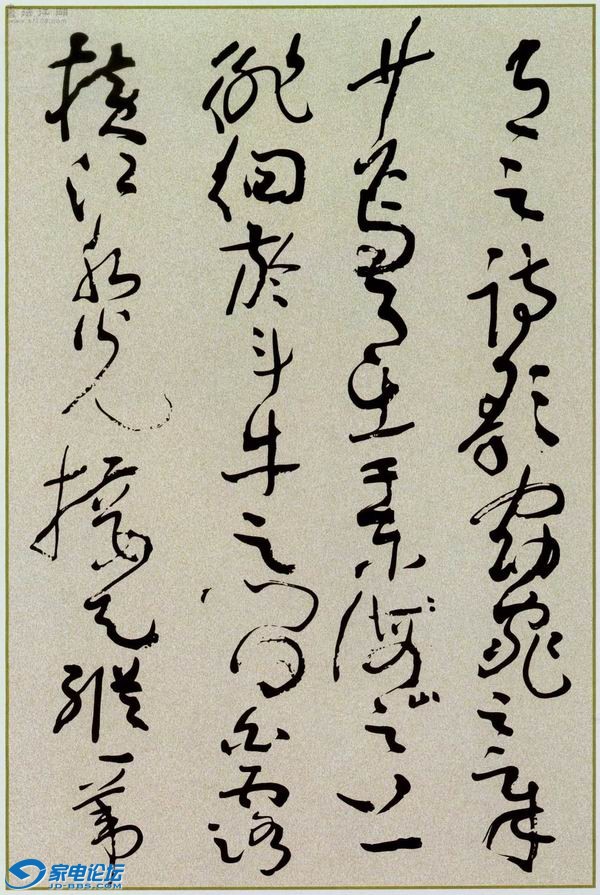 月之詩歌窈窕之章
少焉月出于東山之上
徘徊於斗牛之間白露
橫江水光接天縱一葦
家电论坛
JD-BBS.COM